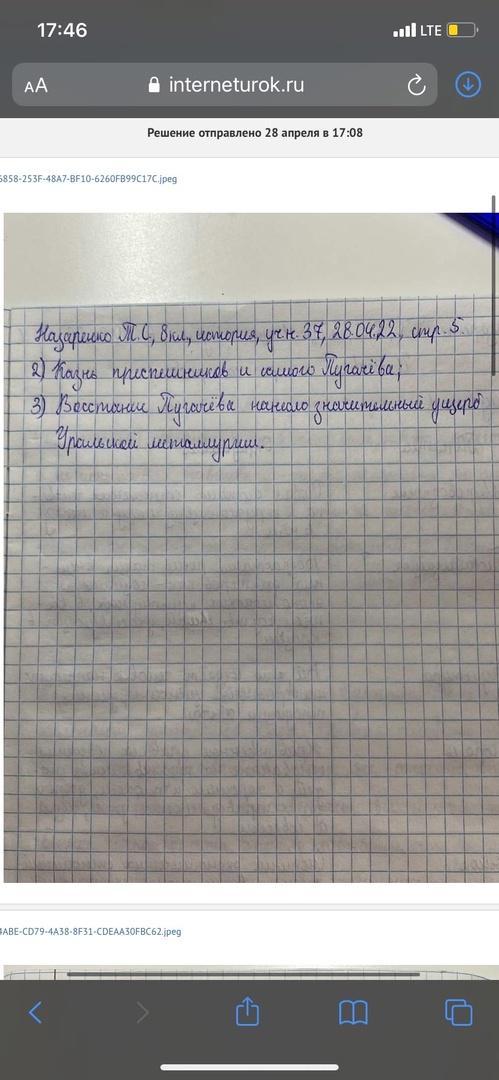 17:46
LTE
AA
interneturok.ru
Решение отправлено 28 апреля в 17:08
6858-253F-48A7-BF10-6260FB99C17C.jpeg
Назаренко Т.С., 8кл, история, уч.н. 37, 28.04.22, стр. 5.
2) Казнь приспешников и самого Пугачёва;
3) Восстание Пугачёва нанесло значительный ущерб
Уральской металлургии.
4ABE-CD79-4A38-8F31-CDEAA30FBC62.jpeg